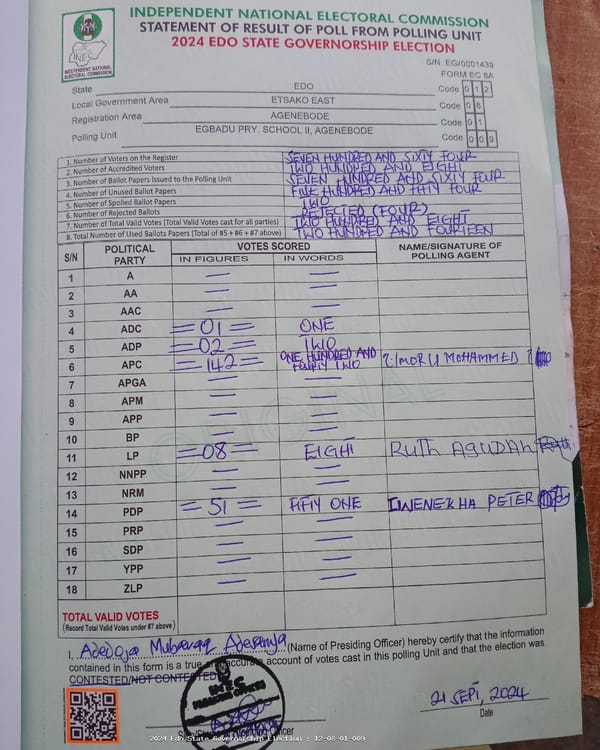 INDEPENDENT NATIONAL ELECTORAL COMMISSION
STATEMENT OF RESULT OF POLL FROM POLLING UNIT
2024 EDO STATE GOVERNORSHIP ELECTION
INEC
INDEPENDENT NATIONAL
ELECTORAL COMMISSION
S/N: EG/0001439
FORM EC 8A
State EDO Code 0 1 2
Local Government Area ETSAKO EAST Code 0 8
Registration Area AGENEBODE Code 0 1
Polling Unit EGBADU PRY. SCHOOL II, AGENEBODE Code 0 0 9
1. Number of Voters on the Register SEVEN HUNDRED AND SIXTY FOUR
2. Number of Accredited Voters TWO HUNDRED AND EIGHT
3. Number of Ballot Papers Issued to the Polling Unit SEVEN HUNDRED AND SIXTY FOUR
4. Number of Unused Ballot Papers FIVE HUNDRED AND FIFTY FOUR
5. Number of Spoiled Ballot Papers TWO
6. Number of Rejected Ballots REJECTED (FOUR)
7. Number of Total Valid Votes (Total Valid Votes cast for all parties) TWO HUNDRED AND EIGHT
8. Total Number of Used Ballots Papers (Total of #5 + #6 + #7 above) TWO HUNDRED AND FOURTEEN
S/N POLITICAL PARTY VOTES SCORED NAME/SIGNATURE OF POLLING AGENT
IN FIGURES IN WORDS
1 A — —
2 AA — —
3 AAC — —
4 ADC =01= ONE
5 ADP =02= TWO
6 APC =142= ONE HUNDRED AND FOURTY TWO MOHAMMED
7 APGA — —
8 APM — —
9 APP — —
10 BP — —
11 LP =08= EIGHT RUTH AGUDAH
12 NNPP — —
13 NRM — —
14 PDP =51= FIFTY ONE IWENEKHA PETER
15 PRP — —
16 SDP — —
17 YPP — —
18 ZLP — —
TOTAL VALID VOTES
(Record Total Valid Votes under #7 above)
I, Adedoja Mubaraq Adesanya (Name of Presiding Officer) hereby certify that the information
contained in this form is a true and accurate account of votes cast in this polling Unit and that the election was
CONTESTED/NOT CONTESTED
INEC
21 SEPT, 2024
Officer
Date
2024 Edo State Governorship Election : 12-08-01-009
ORIGINAL